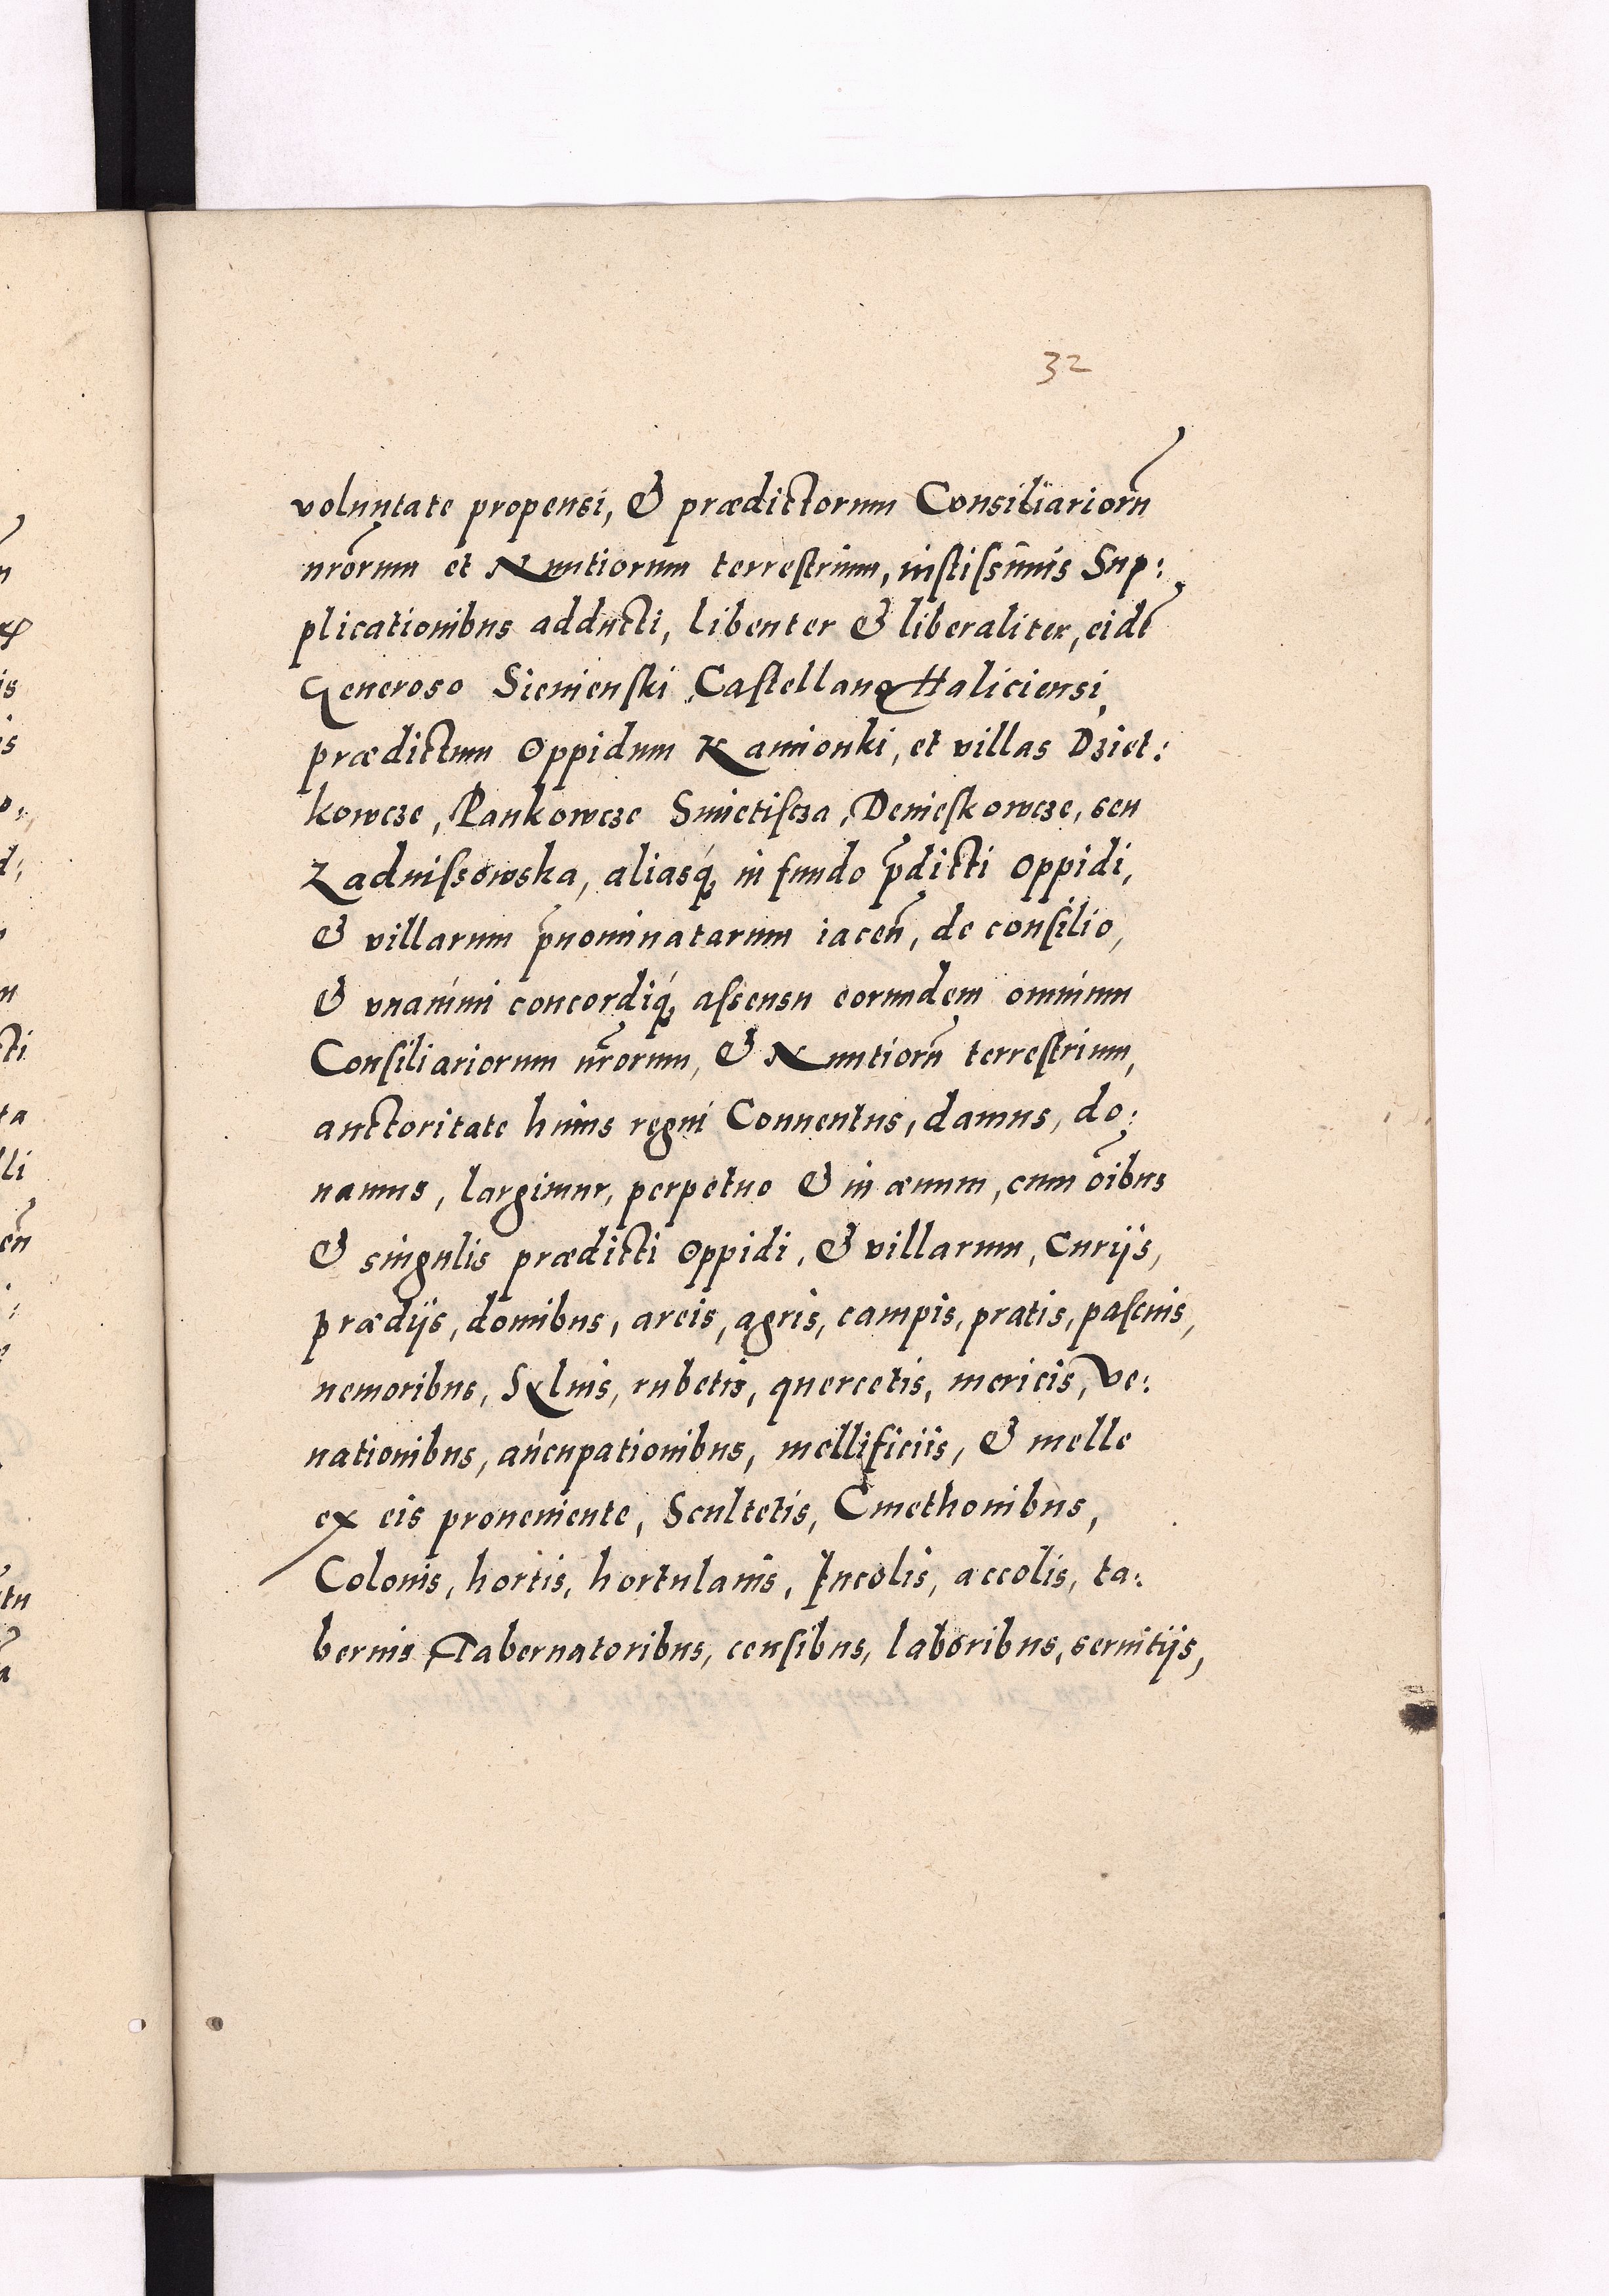 32
voluntate propensi, & prædictorum Consiliariorũ
nr̃orum et Nuntiorum terrestrium, iustissimis Sup:
plicationibus adducti, libenter & liberaliter, eidẽ
Generoso Sienienski Castellano Haliciensi,
prædictum Oppidum Kamionki, et villas Dziet:
kowcze, Pankowcze Smietiscza, Demeskowcze, seu
Zadnissowska, aliasq́ꝫ in fundo p̃dicti Oppidi,
& villarum p̃nominatarum iaceñ, de consilio,
& vnanimi concordiq́ꝫ assensu eorundem omnium
Consiliariorum nr̃orum, & Nuntiorũ terrestrium,
auctoritate huius regni Conuentus, damus, do:
namus, largimur, perpetuo & in æuum, cum oĩbus
& singulis prædicti Oppidi, & villarum, Curijs,
prædijs, domibus, areis, agris, campis, pratis, pascuis,
nemoribus, Syluis, rubetis, quercetis, mericis, Ve:
nationibus, aucupationibus, mellificiis, & melle
ex eis proueniente, Scultetis, Cmethonibus,
Colonis, hortis, hortulanis, Incolis, accolis, ta:
bernis Tabernatoribus, censibus, laboribus, seruitijs,